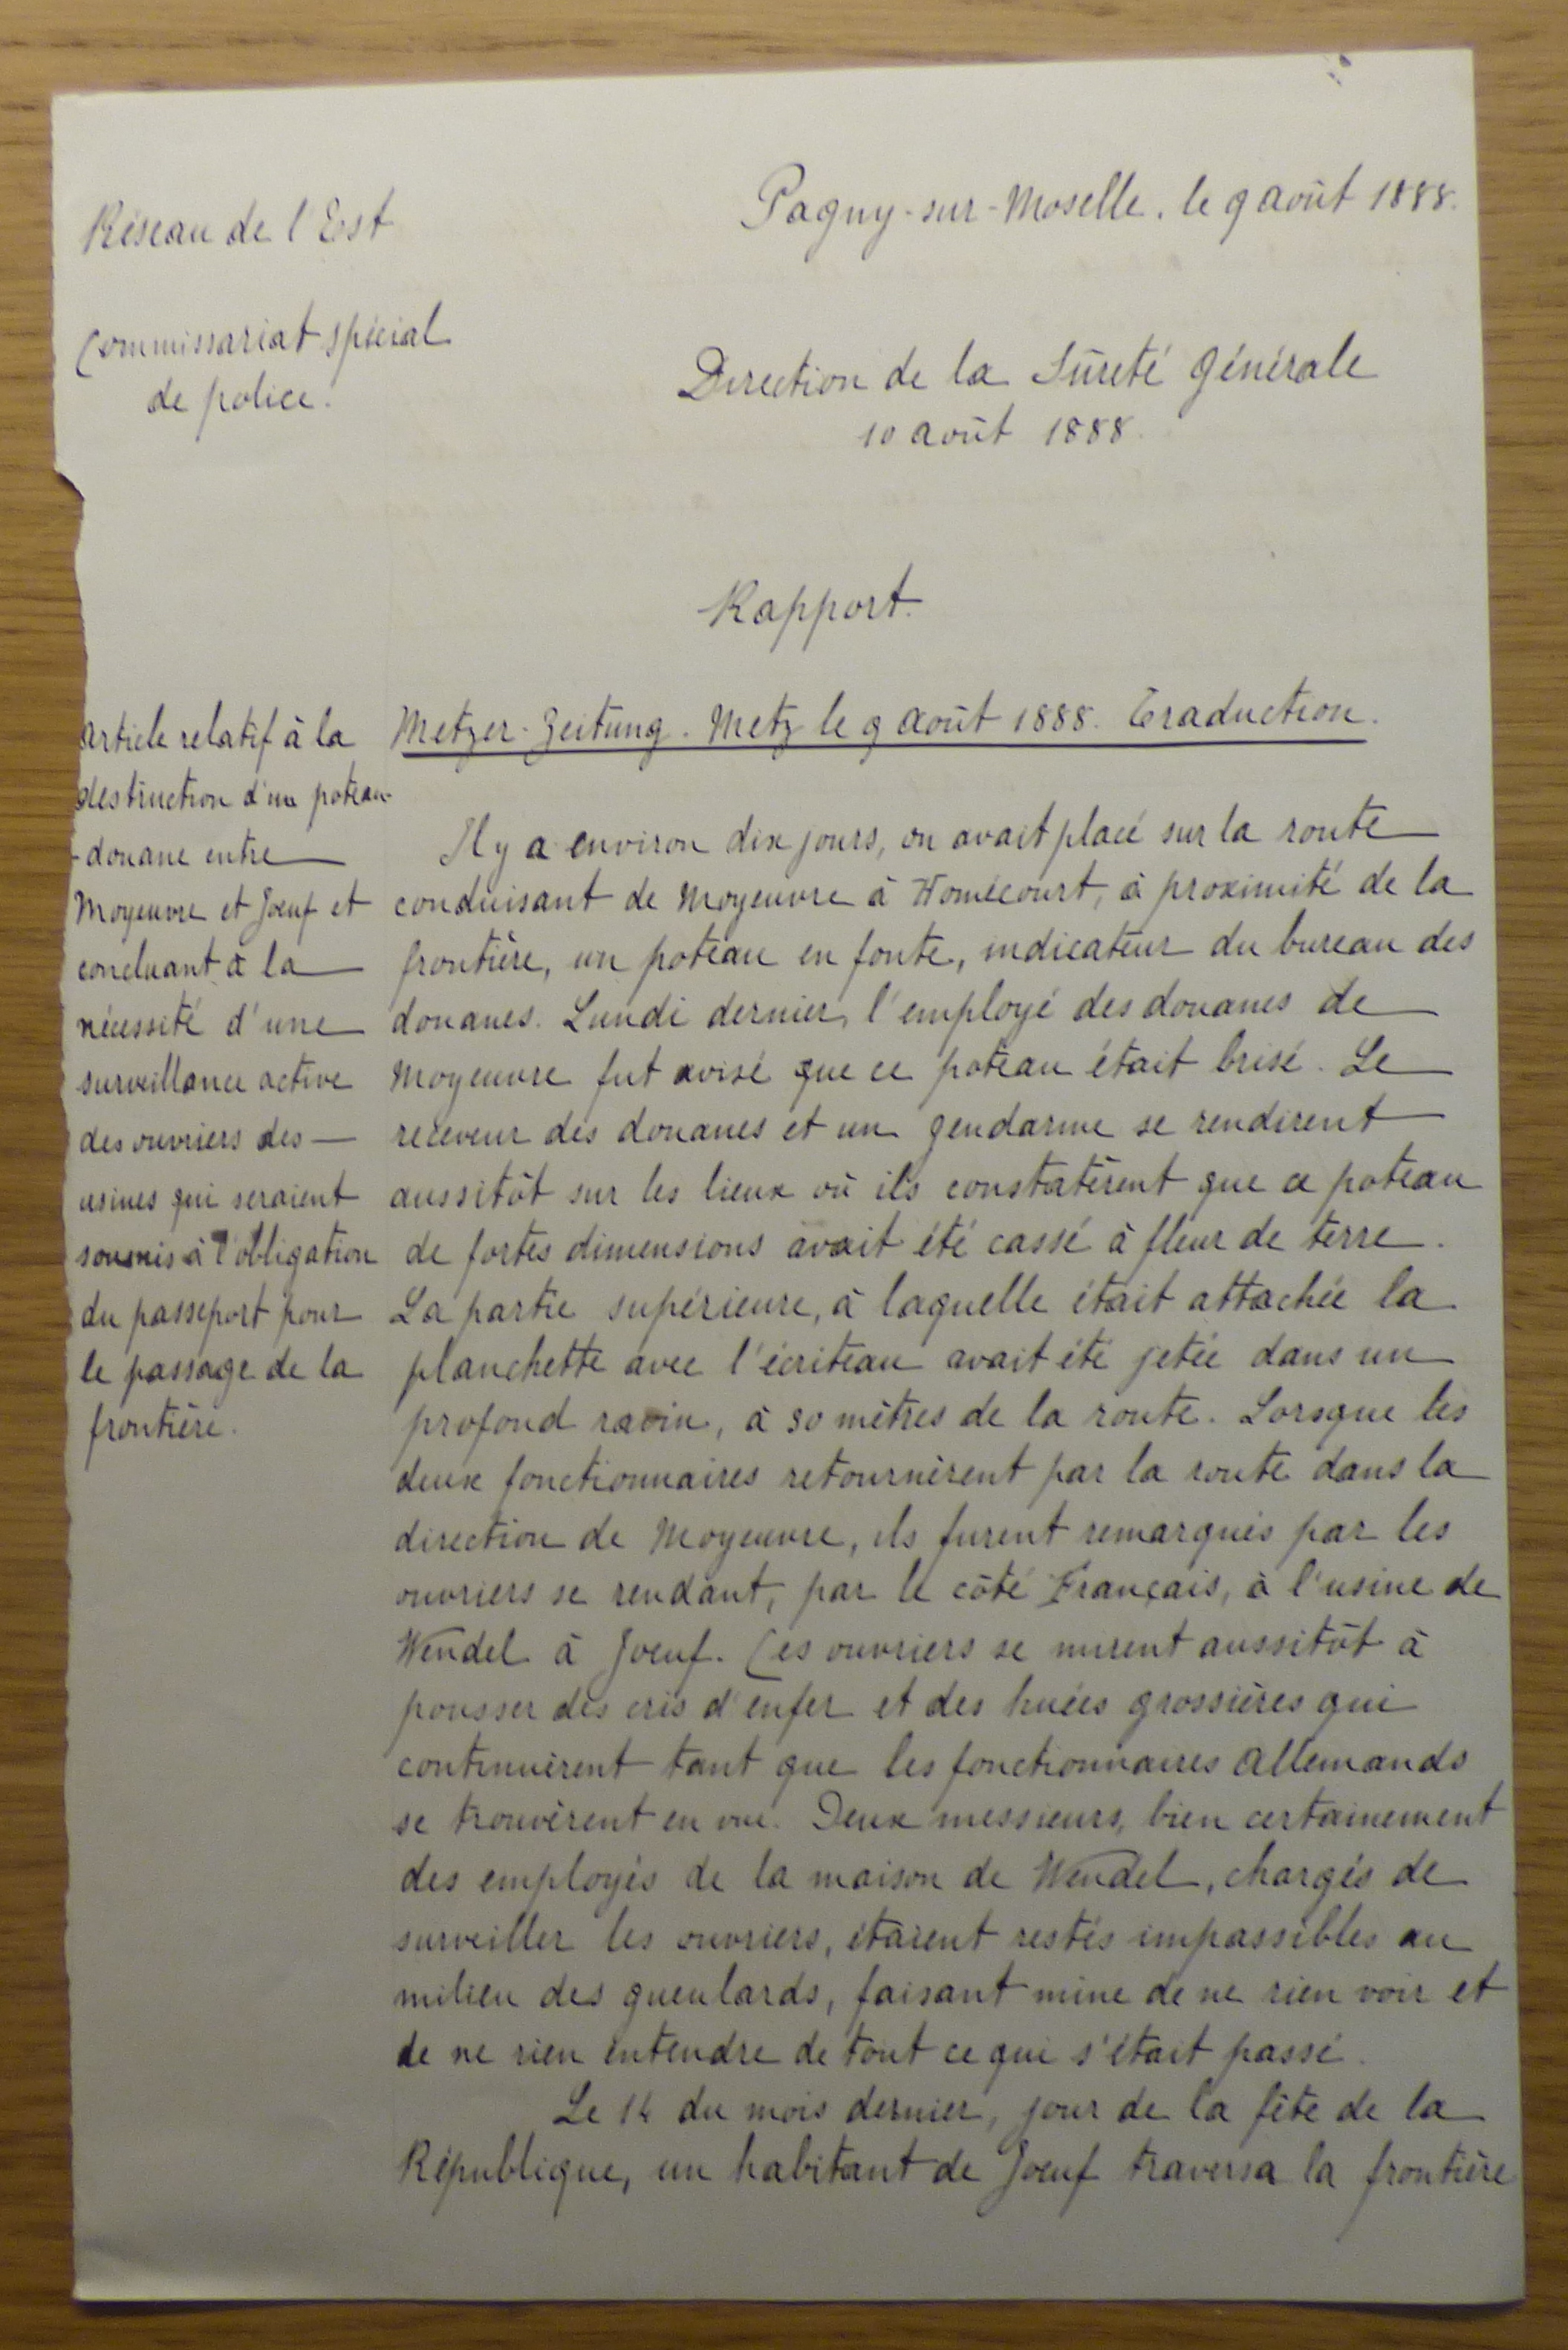 Réseau de l'Est
Commissariat spécial
de police.
Pagny-sur-Moselle, le 9 août 1888.
Direction de la Sûreté Générale
10 août 1888.
Rapport.
Article relatif à la
destruction d'un poteau-
-douane entre
Moyeuvre et Joeuf et
concluant à la
nécessité d'une
surveillance active
des ouvriers des
usines qui seraient
soumis à l'obligation
du passeport pour
le passage de la
frontière.
Metzer-Zeitung. Metz le 9 août 1888. Traduction.
Il y a environ dix jours, on avait placé sur la route
conduisant de Moyeuvre à Homécourt, à proximité de la
frontière, un poteau en fonte, indicateur du bureau des
douanes. Lundi dernier, l'employé des douanes de
Moyeuvre fut avisé que ce poteau était brisé. Le
receveur des douanes et un gendarme se rendirent
aussitôt sur les lieux où ils constatèrent que ce poteau
de fortes dimensions avait été cassé à fleur de terre.
La partie supérieure, à laquelle était attachée la
planchette avec l'écriteau avait été jetée dans un
profond ravin, à 30 mètres de la route. Lorsque les
deux fonctionnaires retournèrent par la route dans la
direction de Moyeuvre, ils furent remarqués par les
ouvriers se rendant, par le côté Français, à l'usine de
Wendel à Joeuf. Ces ouvriers se mirent aussitôt à
pousser des cris d'enfer et des huées grossières qui
continuèrent tant que les fonctionnaires Allemands
se trouvèrent en vue. Deux messieurs, bien certainement
des employés de la maison de Wendel, chargés de
surveiller les ouvriers, étaient restés impassibles au
milieu des gueulards, faisant mine de ne rien voir et
de ne rien entendre de tout ce qui s'était passé.
Le 14 du mois dernier, jour de la fête de la
République, un habitant de Joeuf traversa la frontière